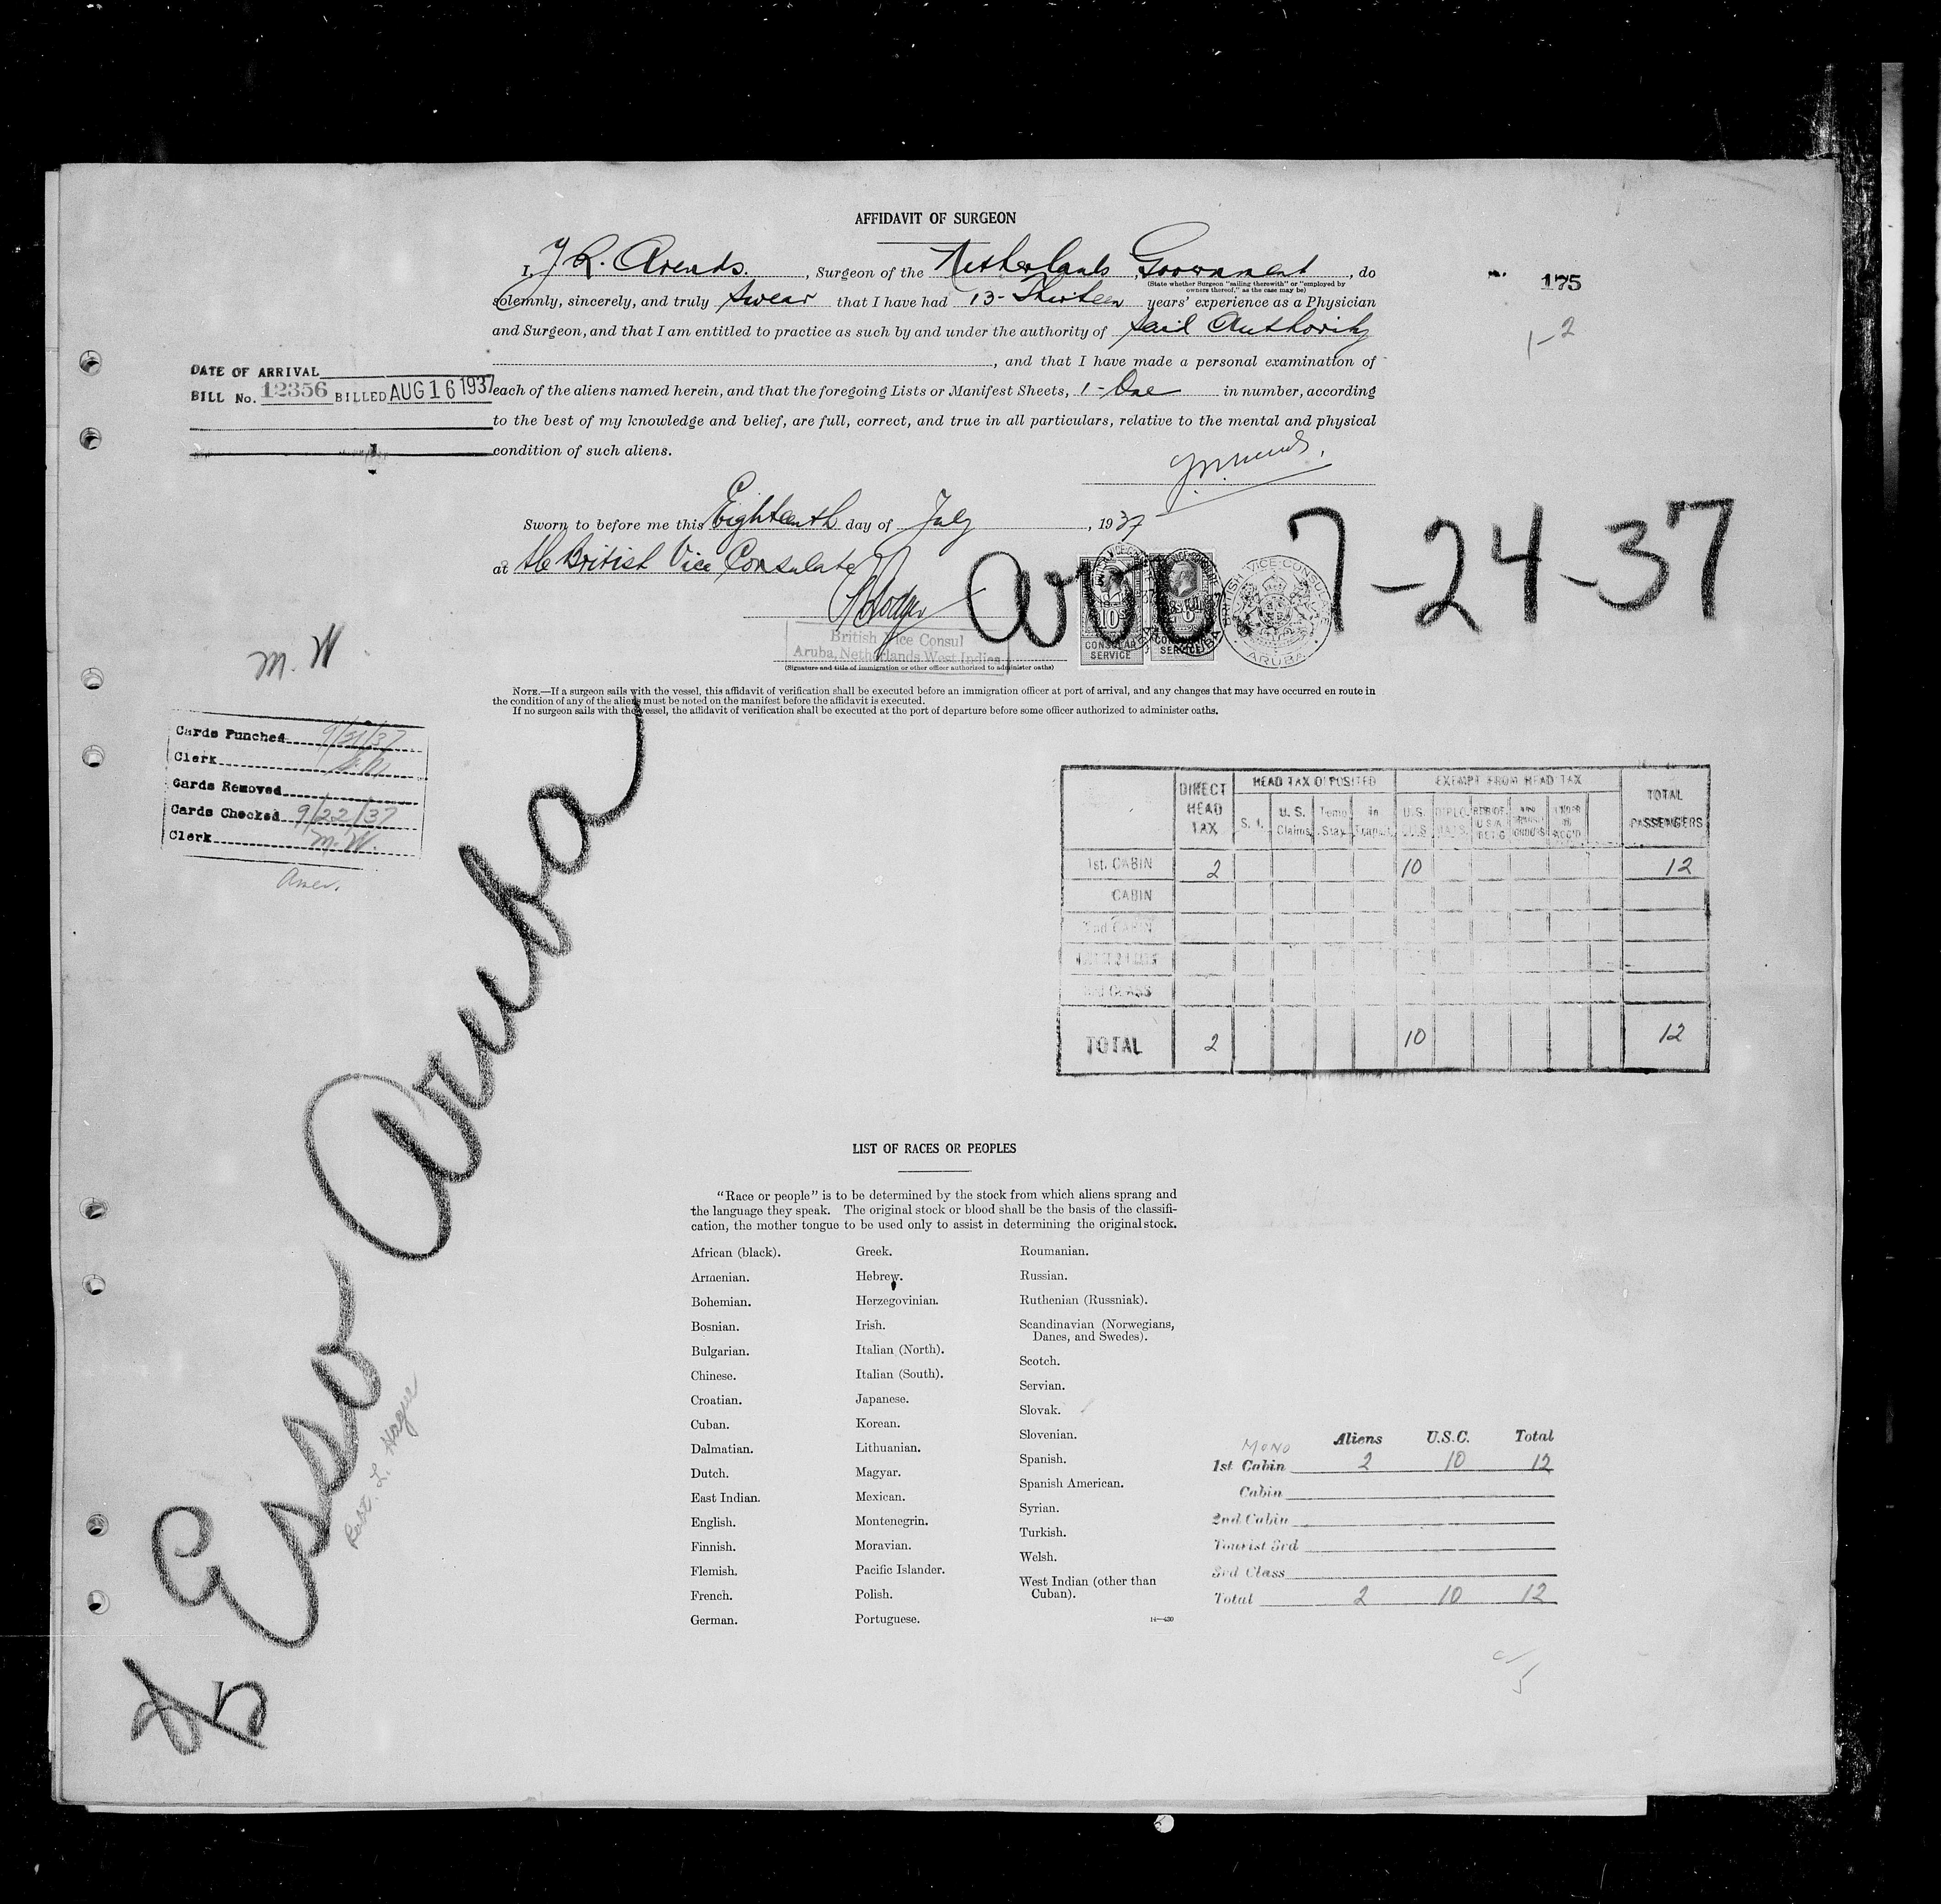 AFFIDAVIT OF SURGEON
I, J R. Arends. , Surgeon of the Netherlands Government , do
(State whether Surgeon "sailing therewith" or "employed by
owners thereof," as the case may be)
solemnly, sincerely, and truly swear that I have had 13- Thirteen years' experience as a Physician
and Surgeon, and that I am entitled to practice as such by and under the authority of said Authority
, and that I have made a personal examination of
each of the aliens named herein, and that the foregoing Lists or Manifest Sheets, 1- One in number, according
to the best of my knowledge and belief, are full, correct, and true in all particulars, relative to the mental and physical
condition of such aliens.
175
1-2
DATE OF ARRIVAL
BILL No. 12356 BILLED AUG 16 1937
Sworn to before me this Eighteenth day of July , 1937
at the British Vice Consulate
arr. 7-24-37
British Vice Consul
Aruba, Netherlands West Indies
(Signature and title of immigration or other officer authorized to administer oaths)
10
CONSULAR
SERVICE
CONSULAR
SERVICE
BRITISH VICE-CONSULATE
ARUBA
NOTE.—If a surgeon sails with the vessel, this affidavit of verification shall be executed before an immigration officer at port of arrival, and any changes that may have occurred en route in
the condition of any of the aliens must be noted on the manifest before the affidavit is executed.
If no surgeon sails with the vessel, the affidavit of verification shall be executed at the port of departure before some officer authorized to administer oaths.
M. W
Cards Punched 9/21/37
Clerk
Cards Removed
Cards Checked 9/22/37
Clerk M. W.
Amer.
Esso Aruba
DIRECT HEAD TAX
HEAD TAX DEPOSITED
EXEMPT FROM HEAD TAX
TOTAL PASSENGERS
S. I.
U. S. Claims
Temp Stay
In Transit
U.S.
DIPLO.
1st. CABIN 2 10 12
CABIN
2nd CABIN
3rd CLASS
TOTAL 2 10 12
LIST OF RACES OR PEOPLES
"Race or people" is to be determined by the stock from which aliens sprang and
the language they speak. The original stock or blood shall be the basis of the classifi-
cation, the mother tongue to be used only to assist in determining the original stock.
African (black).
Armenian.
Bohemian.
Bosnian.
Bulgarian.
Chinese.
Croatian.
Cuban.
Dalmatian.
Dutch.
East Indian.
English.
Finnish.
Flemish.
French.
German.
Greek.
Hebrew.
Herzegovinian.
Irish.
Italian (North).
Italian (South).
Japanese.
Korean.
Lithuanian.
Magyar.
Mexican.
Montenegrin.
Moravian.
Pacific Islander.
Polish.
Portuguese.
Roumanian.
Russian.
Ruthenian (Russniak).
Scandinavian (Norwegians,
Danes, and Swedes).
Scotch.
Servian.
Slovak.
Slovenian.
Spanish.
Spanish American.
Syrian.
Turkish.
Welsh.
West Indian (other than
Cuban).
14—430
MONO Aliens U.S.C. Total
1st Cabin 2 10 12
Cabin
2nd Cabin
Tourist 3rd
3rd Class
Total 2 10 12